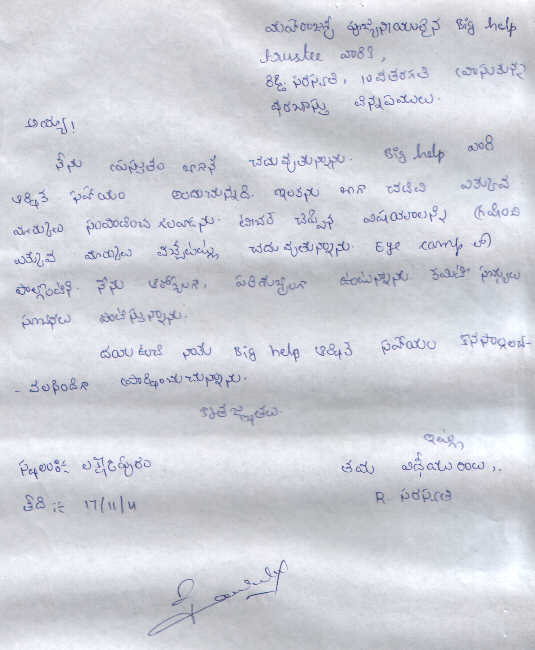 మహారాజశ్రీ పూజ్యనీయులైన Big help
trustee వారికి,
రెడ్డి సరస్వతి, 10వ తరగతి వ్రాసుకున్న
దరఖాస్తు విన్నపములు.
అయ్యా!
నేను ప్రస్తుతం బాగానే చదువుతున్నాను. Big help వారి
ఆర్థిక సహాయం అందుచున్నది. ఇంకను బాగా చదివి ఎక్కువ
మార్కులు సంపాదించ గలవాడను. టీచర్ చెప్పిన విషయాలన్ని గ్రహించి
ఎక్కువ మార్కులు వచ్చేటట్లు చదువుతున్నాను. Eye camp లో
పాల్గొంటిని. నేను ఆరోగ్యంగా, పరిశుభ్రంగా ఉంటున్నాను. కమిటీ సభ్యుల
సూచనలు పాటిస్తున్నాను.
దయ ఉంచి నాకు Big help ఆర్థిక సహాయం కొనసాగించ-
- వలసిందిగా ప్రార్థించుచున్నాను.
కృతజ్ఞతలు.
ఇట్లు
తమ విధేయురాలు,.
R. సరస్వతి
స్థలం:- లక్ష్మీపురం
తేది :- 17/11/11